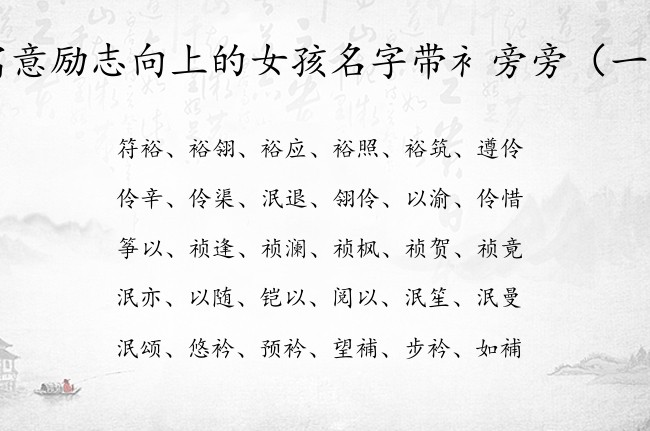 意励志向上的女孩名字带衤旁旁（一
符裕、裕翎、裕应、裕照、裕筑、遵伶
伶辛、伶渠、泯退、翎伶、以渝、伶惜
筝以、祯逢、祯澜、祯枫、祯贺、祯竟
泯亦、以随、铠以、阅以、泯笙、泯曼
泯颂、悠衿、预衿、望補、步衿、如補